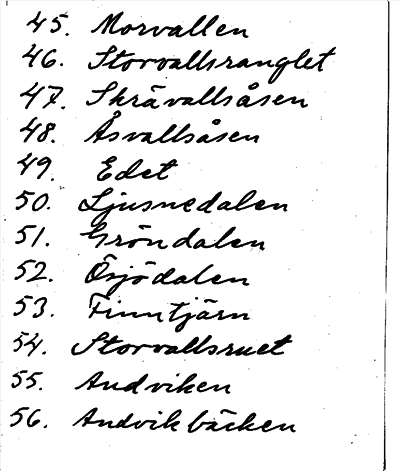 45. Morvallen
46. Storvallsranglet
47. Skrävallsåsen
48. Åsvallsåsen
49. Edet
50. Ljusnedalen
51. Gröndalen
52. Ösjödalen
53. Finntjärn
54. Storvallsruet
55. Andviken
56. Andvikbäcken